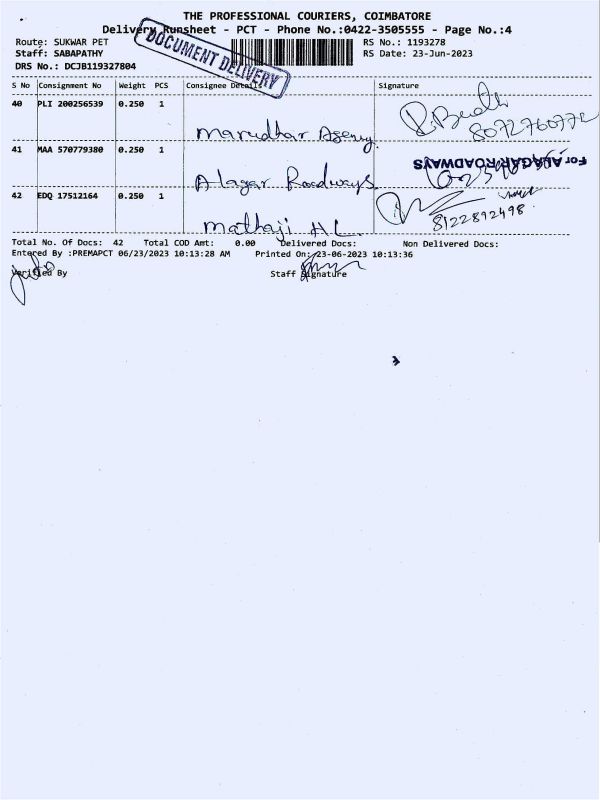 THE PROFESSIONAL COURIERS, COIMBATORE
Delivery Runsheet - PCT - Phone No.:0422-3505555 - Page No.:4
DOCUMENT DELIVERY
Route: SUKWAR PET RS No.: 1193278
Staff: SABAPATHY RS Date: 23-Jun-2023
DRS No.: DCJB119327804
S No Consignment No Weight PCS Consignee Details Signature
40 PLI 200256539 0.250 1
Marudhar Agency. 8072760772
41 MAA 570779380 0.250 1
For ALAGAR ROADWAYS
Alagar Roadways
42 EDQ 17512164 0.250 1
8122892498
Mathaji H L
Total No. Of Docs: 42 Total COD Amt: 0.00 Delivered Docs: Non Delivered Docs:
Entered By :PREMAPCT 06/23/2023 10:13:28 AM Printed On:23-06-2023 10:13:36
Verified By Staff Signature